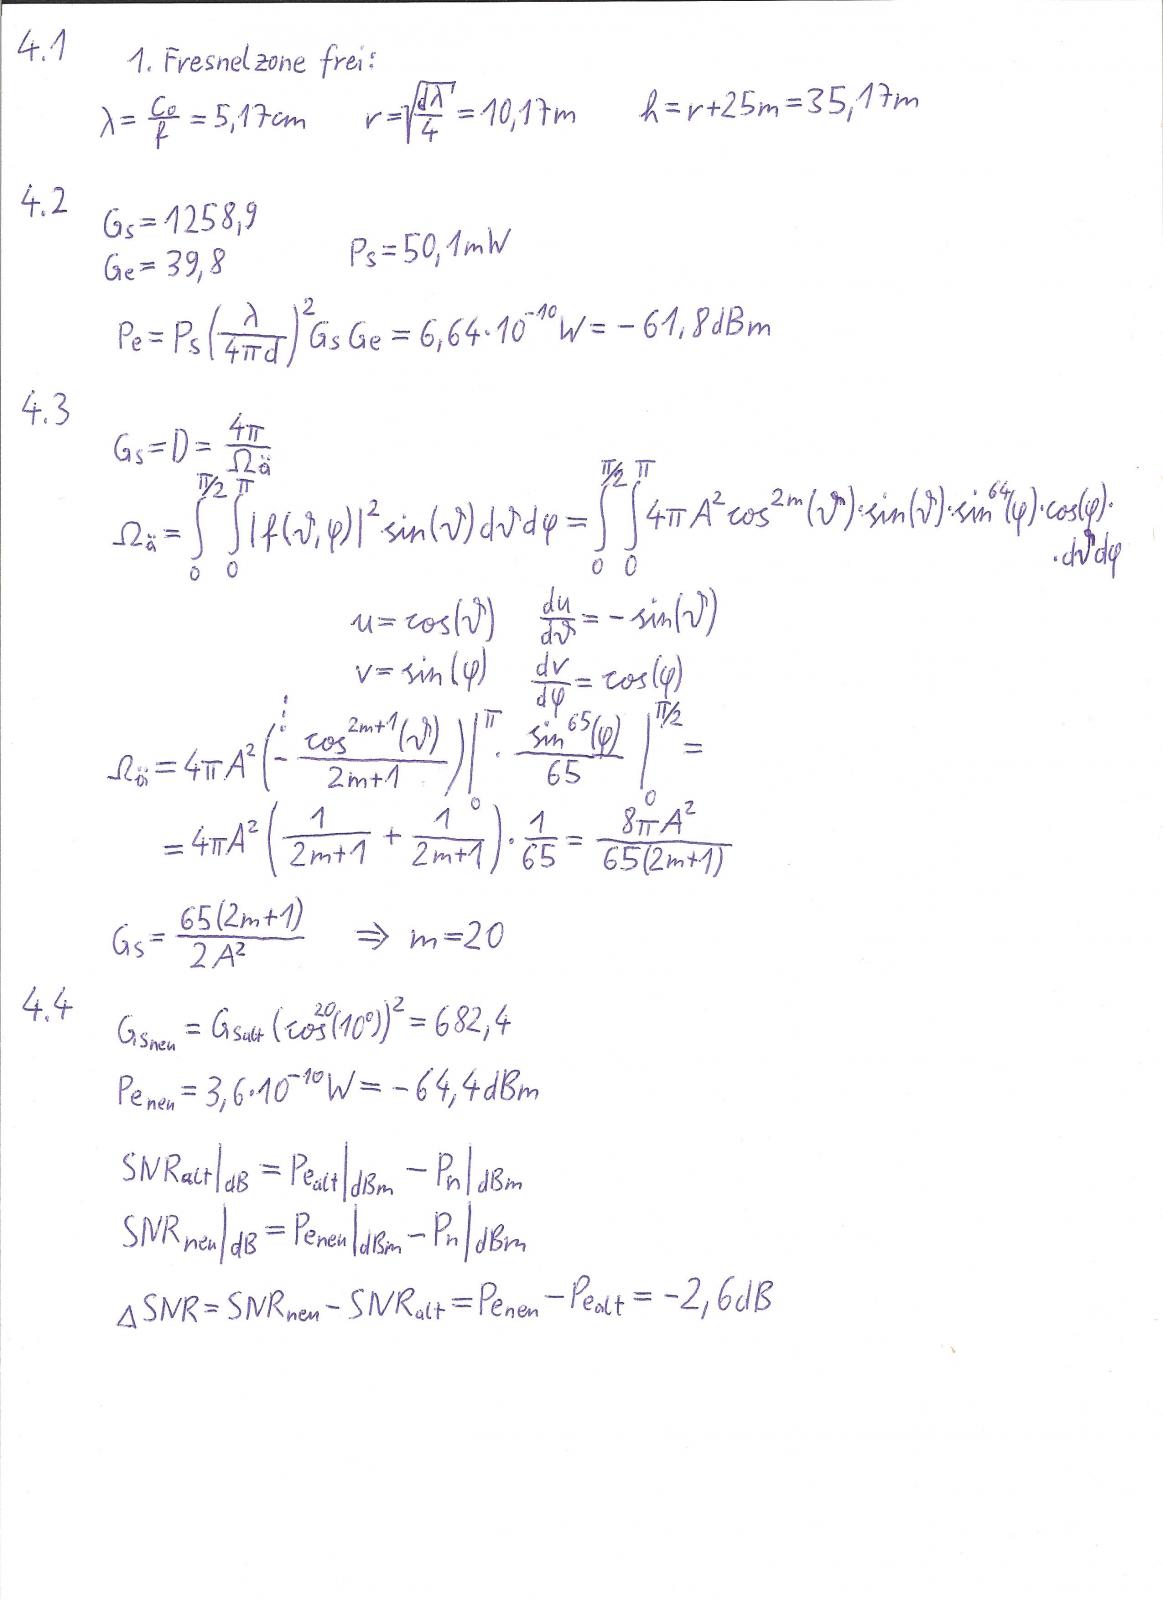 4.1 1. Fresnelzone frei:
λ = c₀/f = 5,17cm r = √(dλ/4) = 10,17m h = r+25m = 35,17m
4.2 Gs = 1258,9
Ge = 39,8 Ps = 50,1mW
Pe = Ps (λ/(4πd))² Gs Ge = 6,64·10⁻¹⁰W = -61,8dBm
4.3
Gs = D = 4π/Ωä
Ωä = ∫₀^π/2 ∫₀^π |f(ϑ,φ)|² · sin(ϑ) dϑ dφ = ∫₀^π/2 ∫₀^π 4π A² cos^2m(ϑ)·sin(ϑ)·sin⁶⁴(φ)·cos(φ)·
·dϑdφ
u = cos(ϑ) du/dϑ = -sin(ϑ)
v = sin(φ) dv/dφ = cos(φ)
⋮
Ωä = 4πA² (-cos^2m+1(ϑ)/(2m+1))|₀^π · sin⁶⁵(φ)/65 |₀^π/2 =
= 4πA² (1/(2m+1) + 1/(2m+1)) · 1/65 = 8πA²/(65(2m+1))
Gs = 65(2m+1)/(2A²) ⇒ m=20
4.4
Gsneu = Gsalt (cos²⁰(10°))² = 682,4
Peneu = 3,6·10⁻¹⁰W = -64,4dBm
SNRalt|dB = Pealt|dBm - Pn|dBm
SNRneu|dB = Peneu|dBm - Pn|dBm
ΔSNR = SNRneu - SNRalt = Peneu - Pealt = -2,6dB